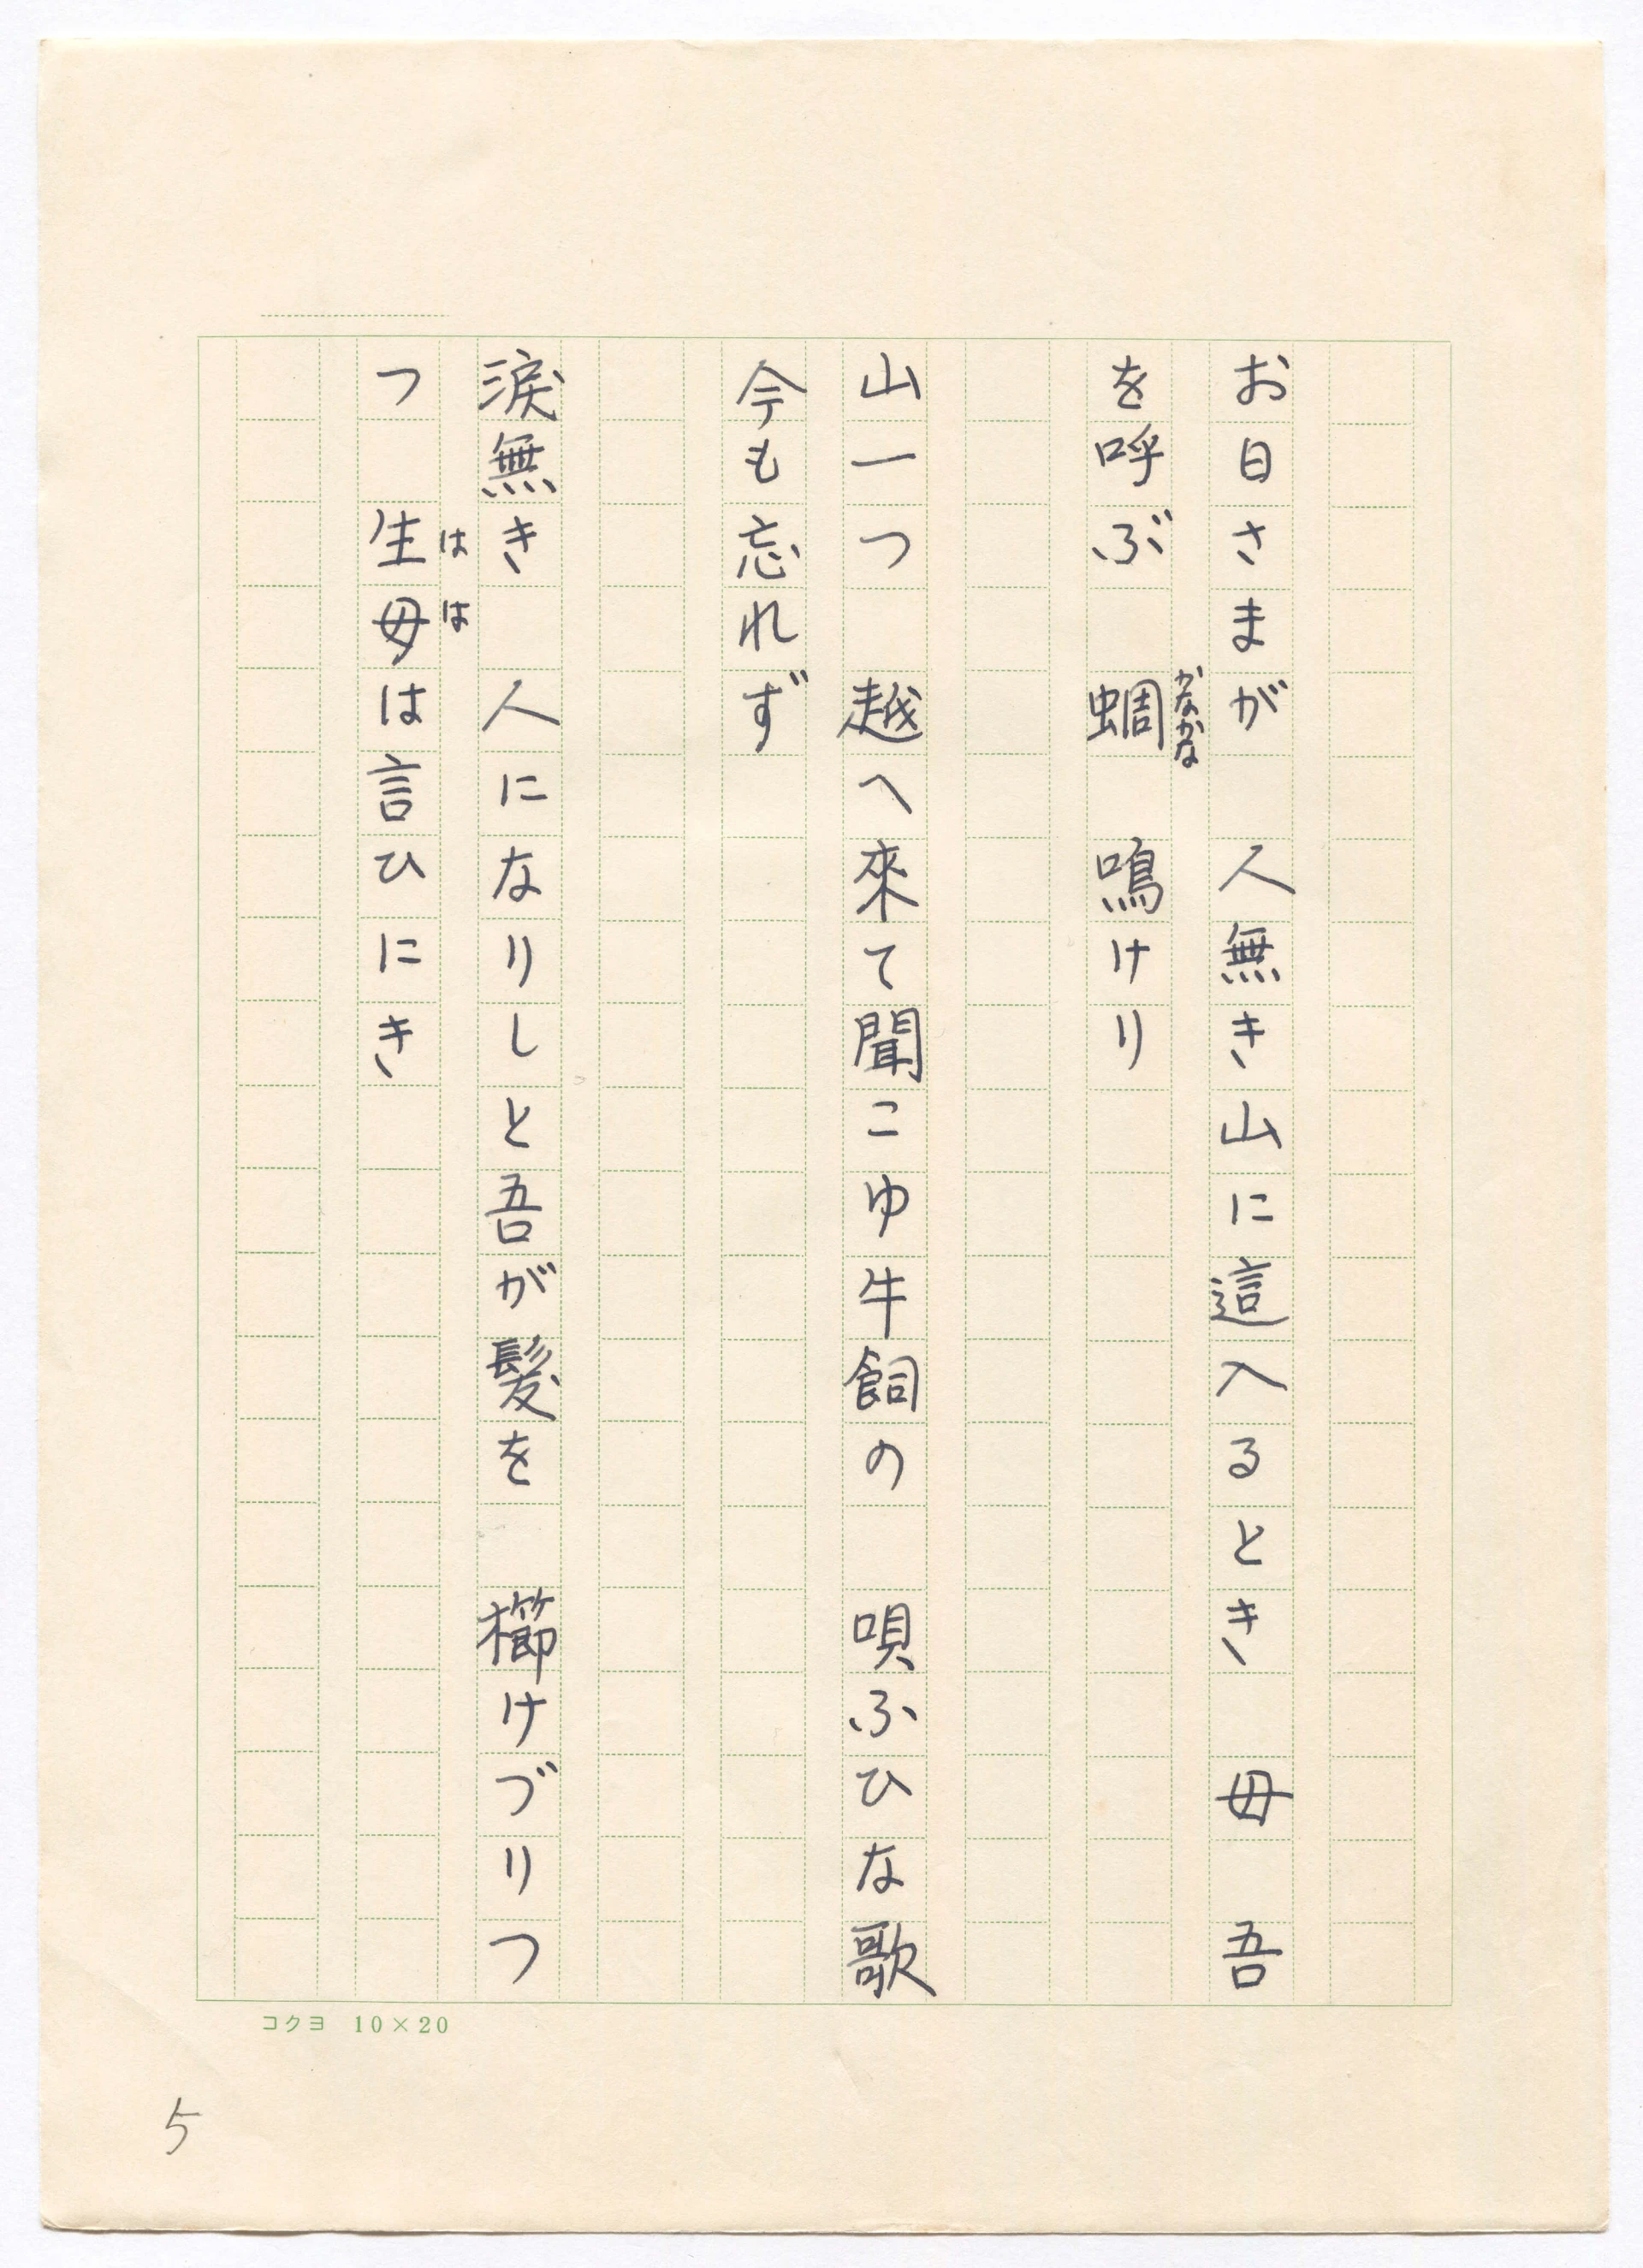 お日さまが　人無き山に這入るとき　母　吾
を呼ぶ　蜩　鳴けり
かなかな
山一つ　越へ來て聞こゆ牛飼の　唄ふひな歌
今も忘れず
涙無き　人になりしと吾が髪を　櫛けづりつ
つ　生母は言ひにき
はは
コクヨ 10×20
5